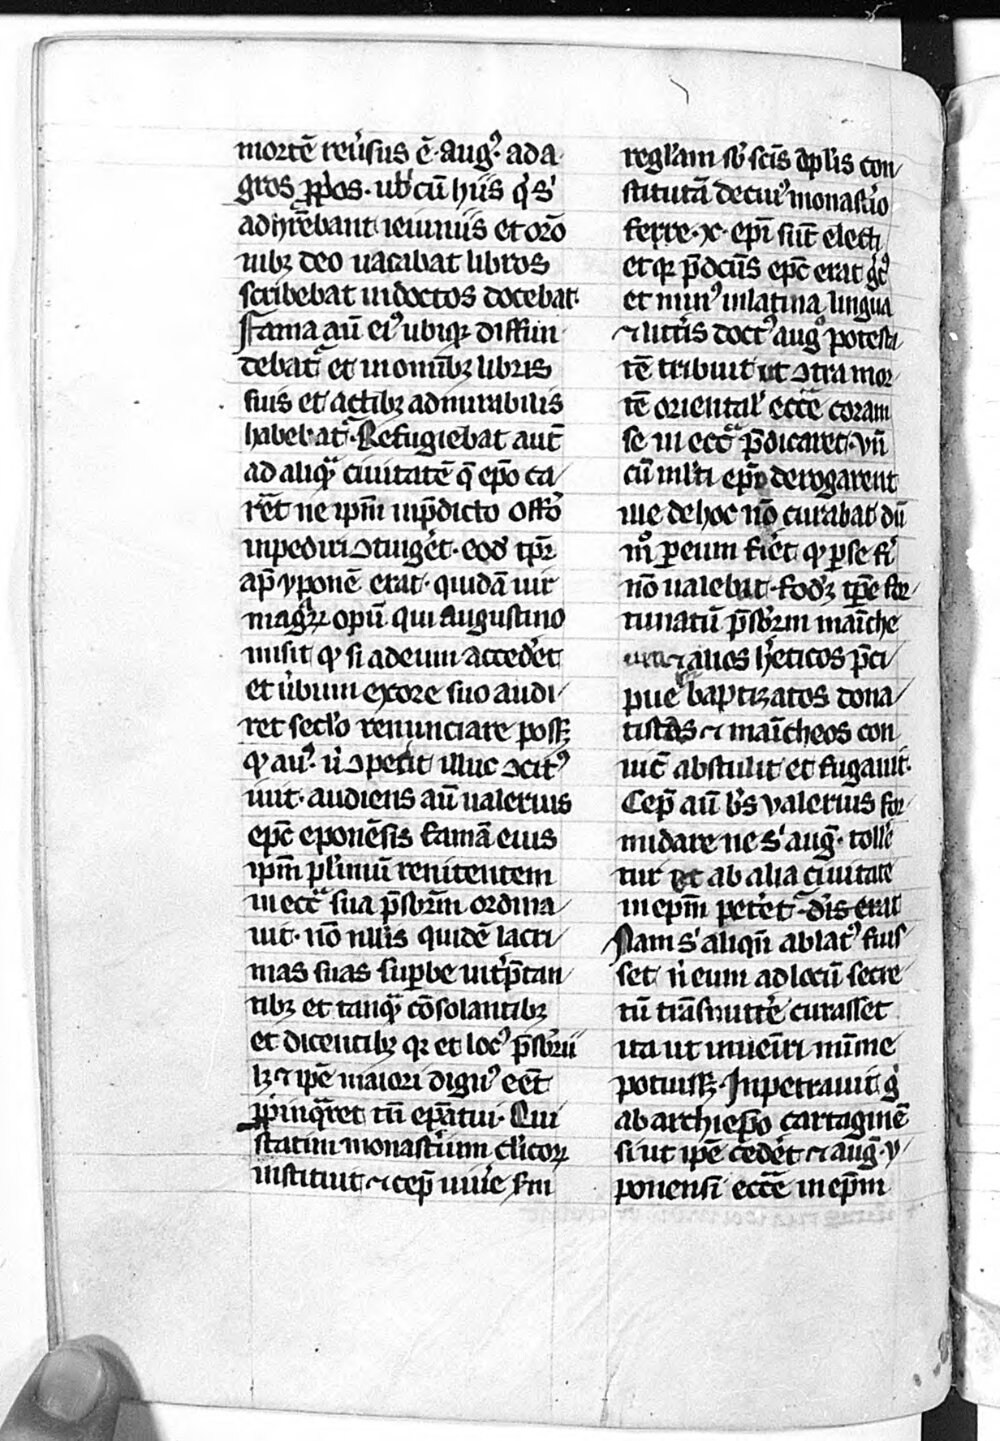 mortē reuẜsus ē· augꝰ· ad a
gros ꝓpͥos· ubͥ cū hiis qͥ sͥ
adhrēbant ieiuniis et orō
nibꝫ deo uacabat libros
scribebat indoctos docebat·
Fama aū eiꝰ ubiqꝫ diffun
debat᷑ et in omībꝫ libris
suis et actibꝫ admirabilis
habebat᷑· Refugiebat aut̄
ad aliqͣ ciuitatē q̄ ep̄o ca
rēt ne ip̄m in p̄dicto offō
inpediri ↄtiuget· eod tp̄r
ap̄ yponē erat· quidā uir
magꝝ opū qui augustino
misit ꝙ si ad eum accedet
et ūbum ex ore suo audi
ret secło renunciare possꝫ
ꝙ auꝰ· ū ↄpetit illuc ↄcitꝰ
iuit· audiens aū ualerius
ep̄c eponēsis famā eius
ip̄m pl̓imū renitentem
in ecc̄ͣ sua p̄sbrm̄ ordina
uit· nō nllis quidē lacri
mas suas suꝑbe int̓p̄tan
tibꝫ et tanqͣ cōsolantibꝫ
et dicentibꝫ qꝛ et locꝰ p̄sbrii
lꝫ ⁊ ipē maiori dignꝰ eēt
ꝓpinqͣret tn̄ ep̄atui· Qui
statim monastium cl̓icoꝝ
instituit ⁊ cep̄ uiuͤe scd̄m
regl̓am sb̓ scīs apl̓is con
stitutā de cuiꝰ monastͥo
ferre· x· ep̄i sūt electi
et qꝛ p̄dcūs ep̄c erat gͤcꝰ
et minꝰ in latina lingua
⁊ littͥis doctꝰ augꝰ potesta
tē tribuit ut ↄtra mor
tē oriental̓ ecc̄e coram
se in ecc̄ͣ p̄dicaret· vn̄
cū ml̓ti ep̄i derogarent
ille de hoc nō curabat dū
mͦ per eum fiēt ꝙ ꝑ se fiͥ
nō ualebat· Eodꝫ tp̄e for
tunatū p̄sbrm maīche
um ⁊ alios h̓eticos p̄ci
pue baptizatos dona
tistas ⁊ maīcheos con
uic̄ abstulit et fugauit·
Cep̄ aū b̄s valerius for
midare ne sͥ aug̃· tolle
tur et ab alia ciuitate
in ep̄m petet᷑· d̄is erat
Nam sͥ aliqn̄ ablatꝰ fuis
set n̓ eum ad locū secre
tū trāsmittē curasset
ita ut inueīri mīme
potuissꝫ· Inpetrauit gͦ
ab archiep̄o cartaginē
si ut ip̄e cedet ⁊ aug̃· y
ponensi ecc̄e in ep̄m